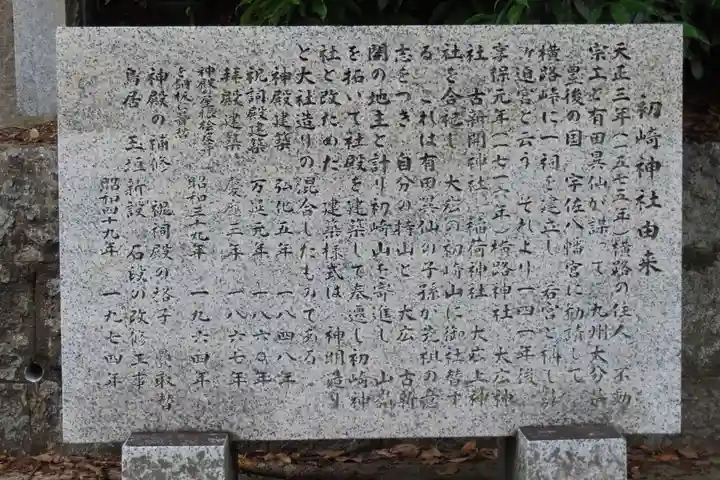 初崎神社由来
天正三年(一五七五年)横路の住人 不動
宗正と有田具仙が謀って 九州大分県
豊後の国 宇佐八幡宮に勧請して
横路峠に一祠を建立し 若宮と称し
ヶ迫宮と云う それより一四一年後
享保元年(一七一六年)横路神社 大広神
社 古新開神社 稲荷神社 大広上神
社を合祀し 大広の初崎山に御社替す
る これは有田具仙の子孫が先祖の意
志をつぎ 自分の持山と 大広 古新
開の地主と計り初崎山を寄進し 山
を拓いて社殿を建築して奉還し初崎神
社と改ためた 建築様式は 神明造り
と大社造りの混合したものである
神殿建築 弘化五年 一八四八年
祝詞殿建築 万延元年 一八六〇年
拝殿建築 慶應三年 一八六七年
神殿屋根
昭和三九年 一九六四年
神殿の補修 祝詞殿の格子 取替
鳥居 玉垣新設 石段の改修工事
昭和四十九年 一九七四年